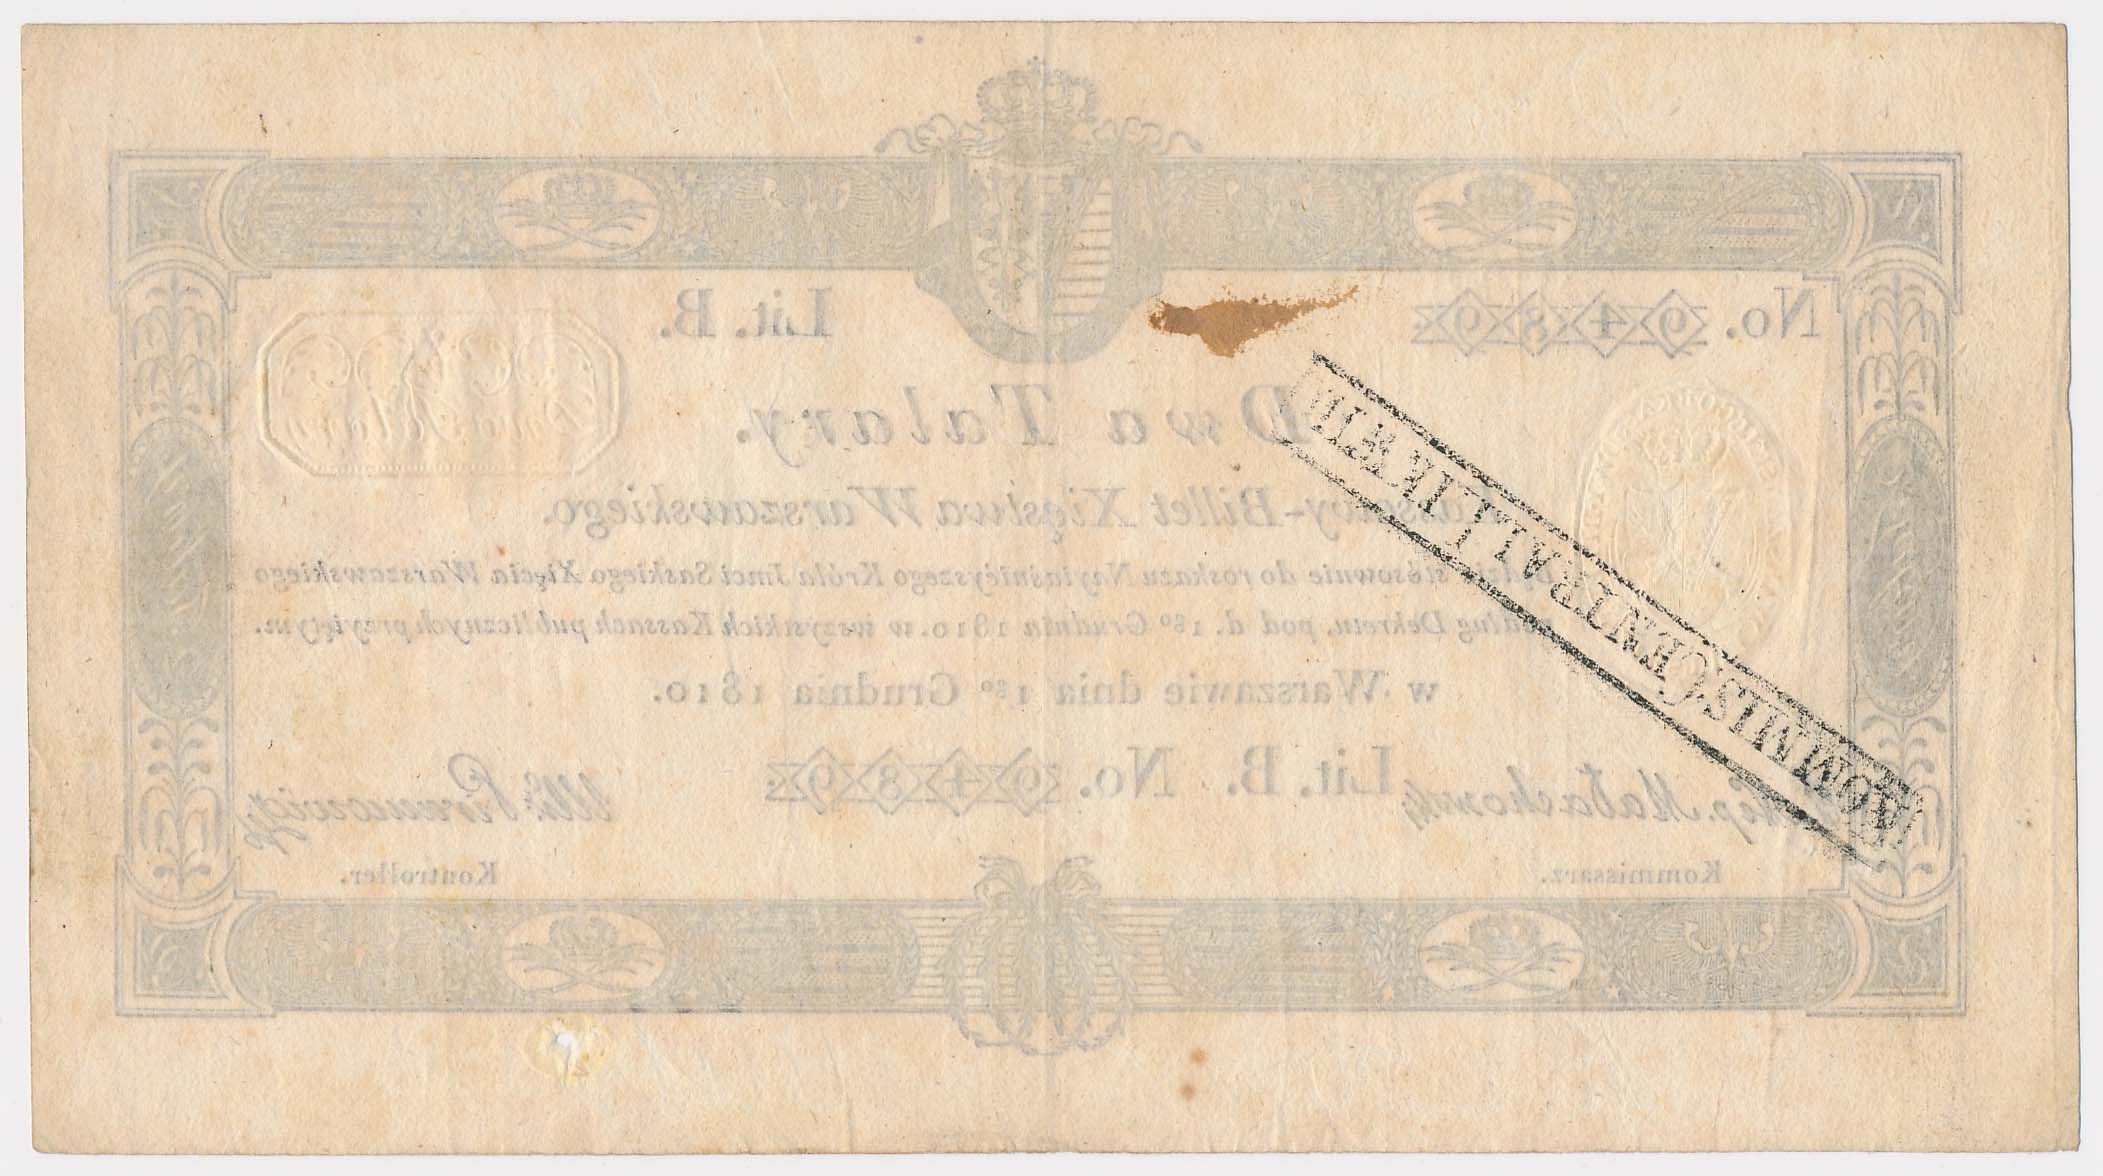 No. 9489
Lit. B.
Dwa Talary.
Dwa Talary
Kassowy-Billet Xięstwa Warszawskiego.
będzie stósownie do roskazu Nayiaśnieyszego Króla Jmci Saskiego Xięcia Warszawskiego
podług Dekretu, pod d. 1go Grudnia 1810. w wszystkich Kassach publicznych przyiętym.
w Warszawie dnia 1go Grudnia 1810.
Lit. B. No. 9489
Małachowski
Kommissarz.
Kontroller.
KOMMIS: CENTRAL LIKWID